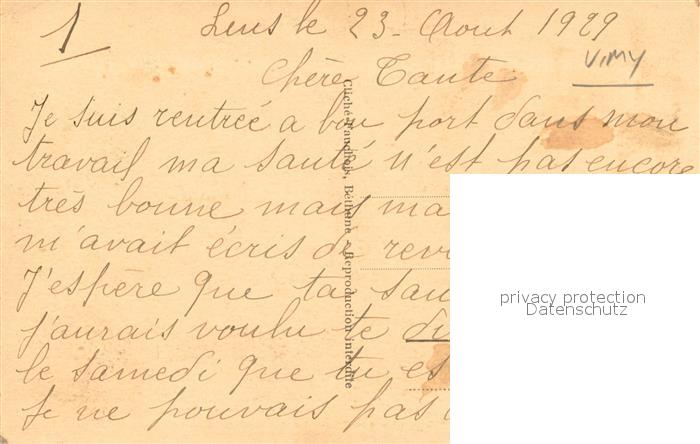 1
Lens le 23 - Aout 1929
VIMY
Chère Tante
Je suis rentrée a bon port dans mon
travail ma santé n'est pas encore
très bonne mais ma
m'avait écris de
J'espère que ta
j'aurais voulu te
le samedi que tu
Je ne pouvais pas
Béthune - Reproduction interdite
privacy protection
Datenschutz